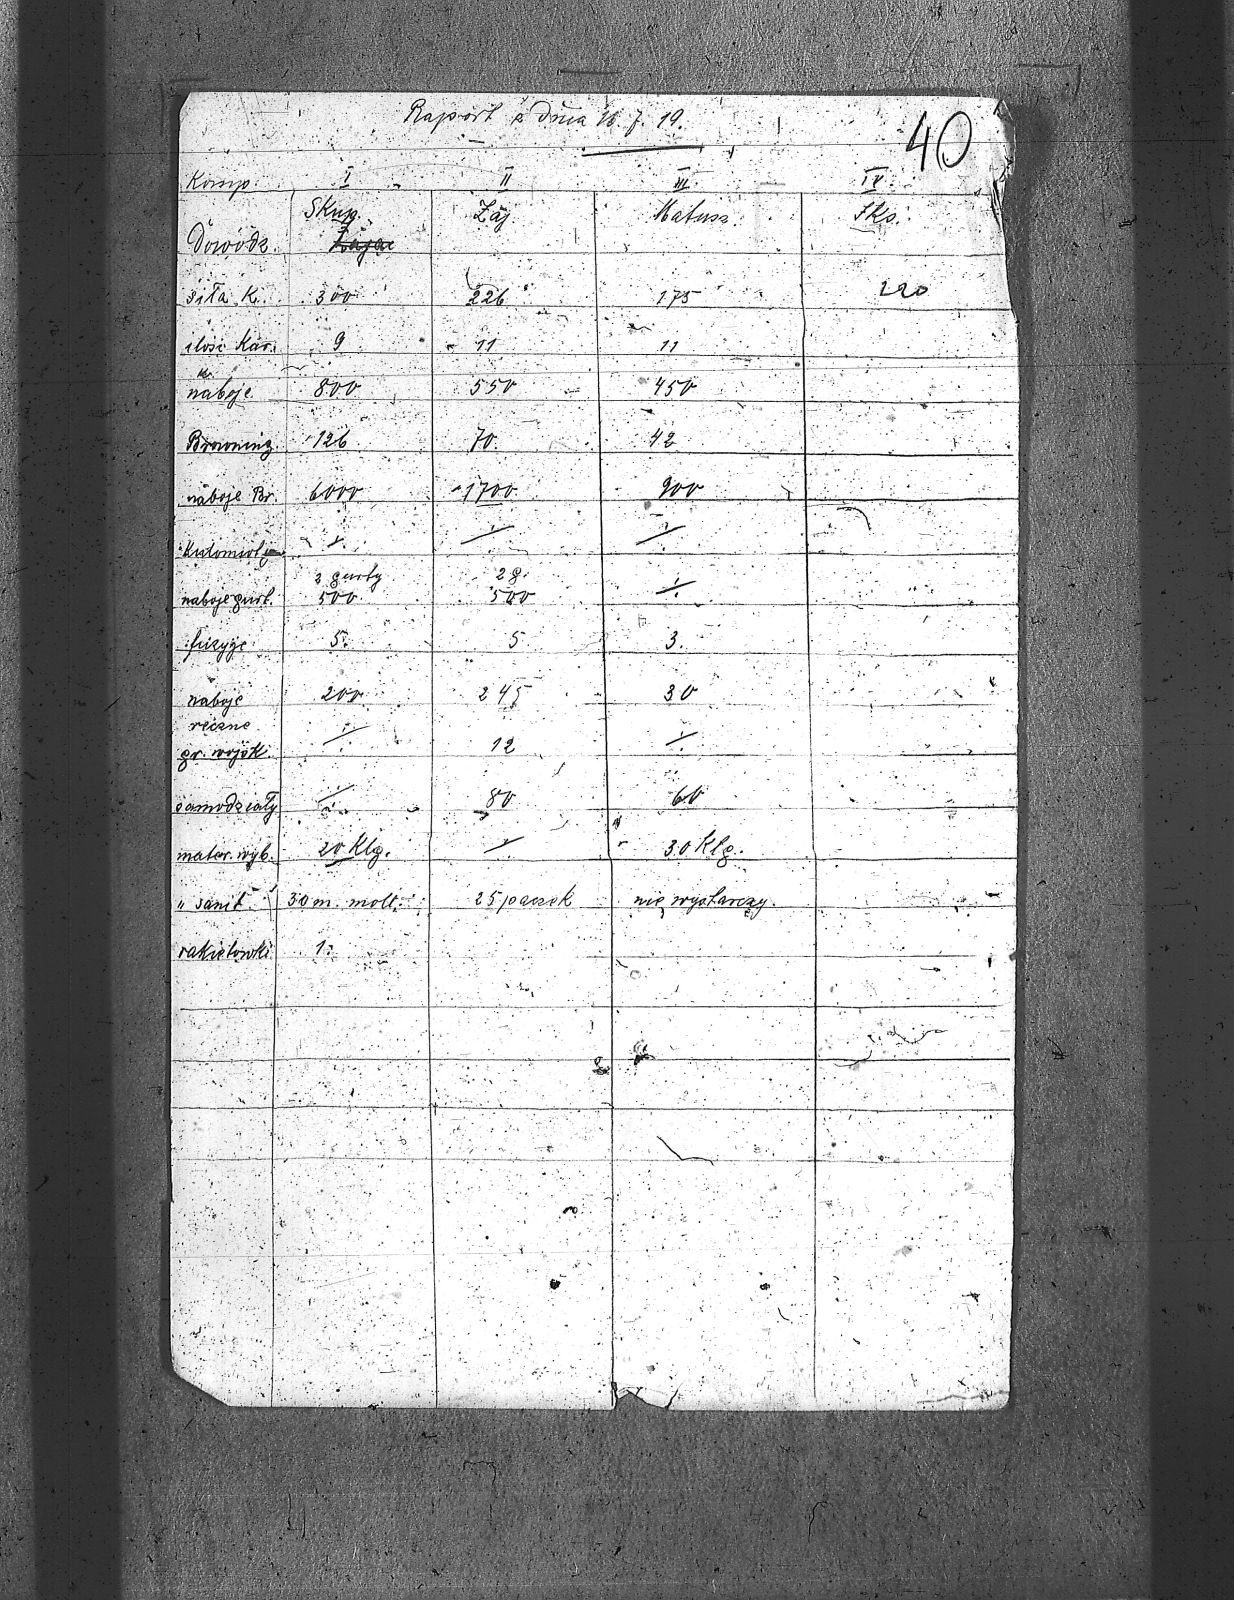 Raport z dnia 16. 7. 19.
40
Komp. I II III. IV.
Dowódz. Skup. Zając Zaj Matusz. Iks.
siła K. 300 226 175 220
ilość Kar. 9 11 11
naboje K. 800 550 450
Browning. 126 70. 42
naboje Br. 6000 1700 900
Kulomioty ÷ ÷ ÷
naboje gurt. 2 gurty 500 2 g. 500 ÷
fuzyje 5. 5 3.
naboje 200 245 30
ręczne gr. wojsk. ÷ 12 ÷
samodziały ÷ 80 60
mater. wyb. 20 Klg. ÷ 30 Klg.
" sanit. 30 m. moll. 25 paczek nie wystarczy.
rakietowki 1.